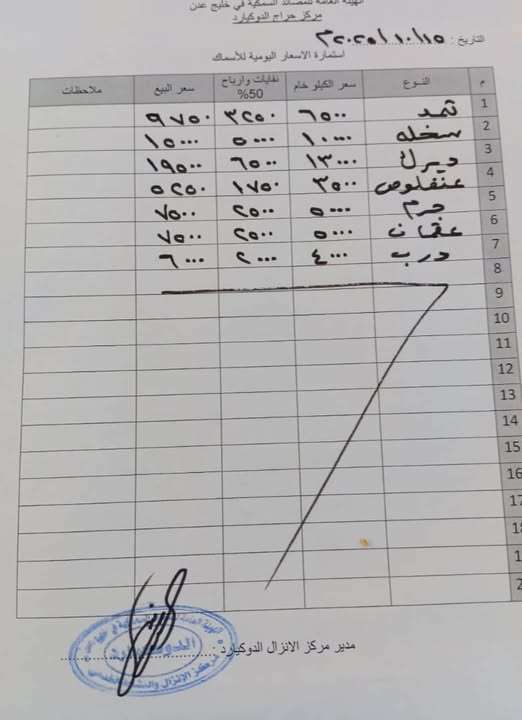 الهيئة العامة للمصائد السمكية في خليج عدن
مركز حراج الدوكيارد
التاريخ : ٢٠٢٥/١٠/١٥م
استمارة الاسعار اليومية للأسماك
م النوع سعر الكيلو خام نفايات وارباح 50% سعر البيع ملاحظات
1 ثمد ٦٥٠٠ ٣٢٥٠ ٩٧٥٠
2 سخله ١٠٠٠٠ ٥٠٠٠ ١٥٠٠٠
3 ديرك ١٣٠٠٠ ٦٥٠٠ ١٩٥٠٠
4 عنفلوص ٣٥٠٠ ١٧٥٠ ٥٢٥٠
5 جرم ٥٠٠٠ ٢٥٠٠ ٧٥٠٠
6 عقمان ٥٠٠٠ ٢٥٠٠ ٧٥٠٠
7 درب ٤٠٠٠ ٢٠٠٠ ٦٠٠٠
8
9
10
11
12
13
14
15
16
17
18
مدير مركز الانزال الدوكيارد :